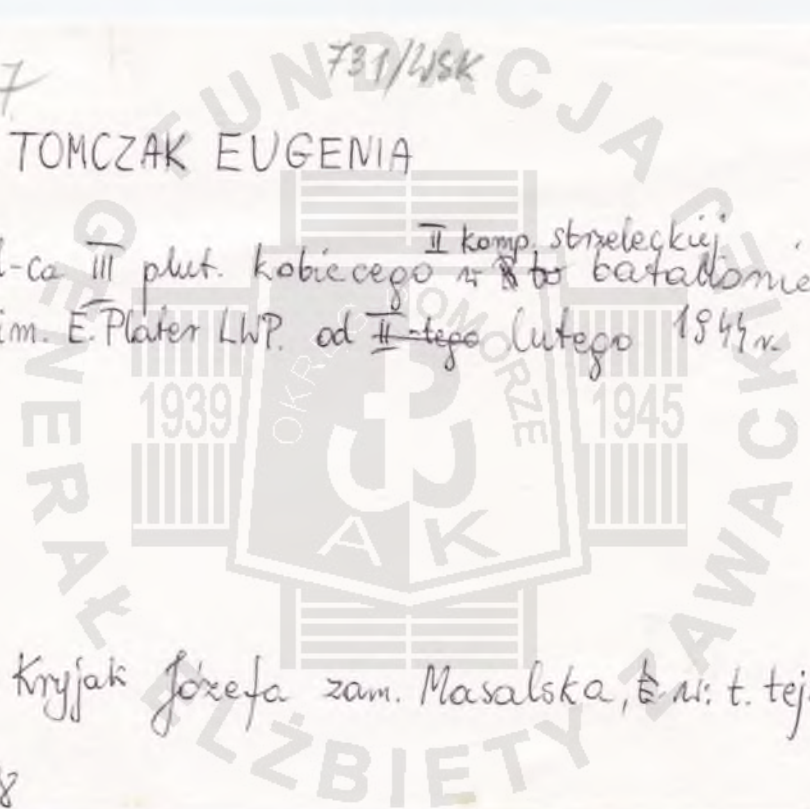 731/WSK
7
TOMCZAK EUGENIA
II komp. strzeleckiej
d-ca III plut. kobiecego w batalionie
im. E. Plater LWP. od II-tego lutego 1944 r.
Kryjak Józefa zam. Masalska, w: t. tej
8
FUNDACJA GENERAŁ ELŻBIETY ZAWACKIEJ
OKRĘG POMORZE
1939
1945
AK